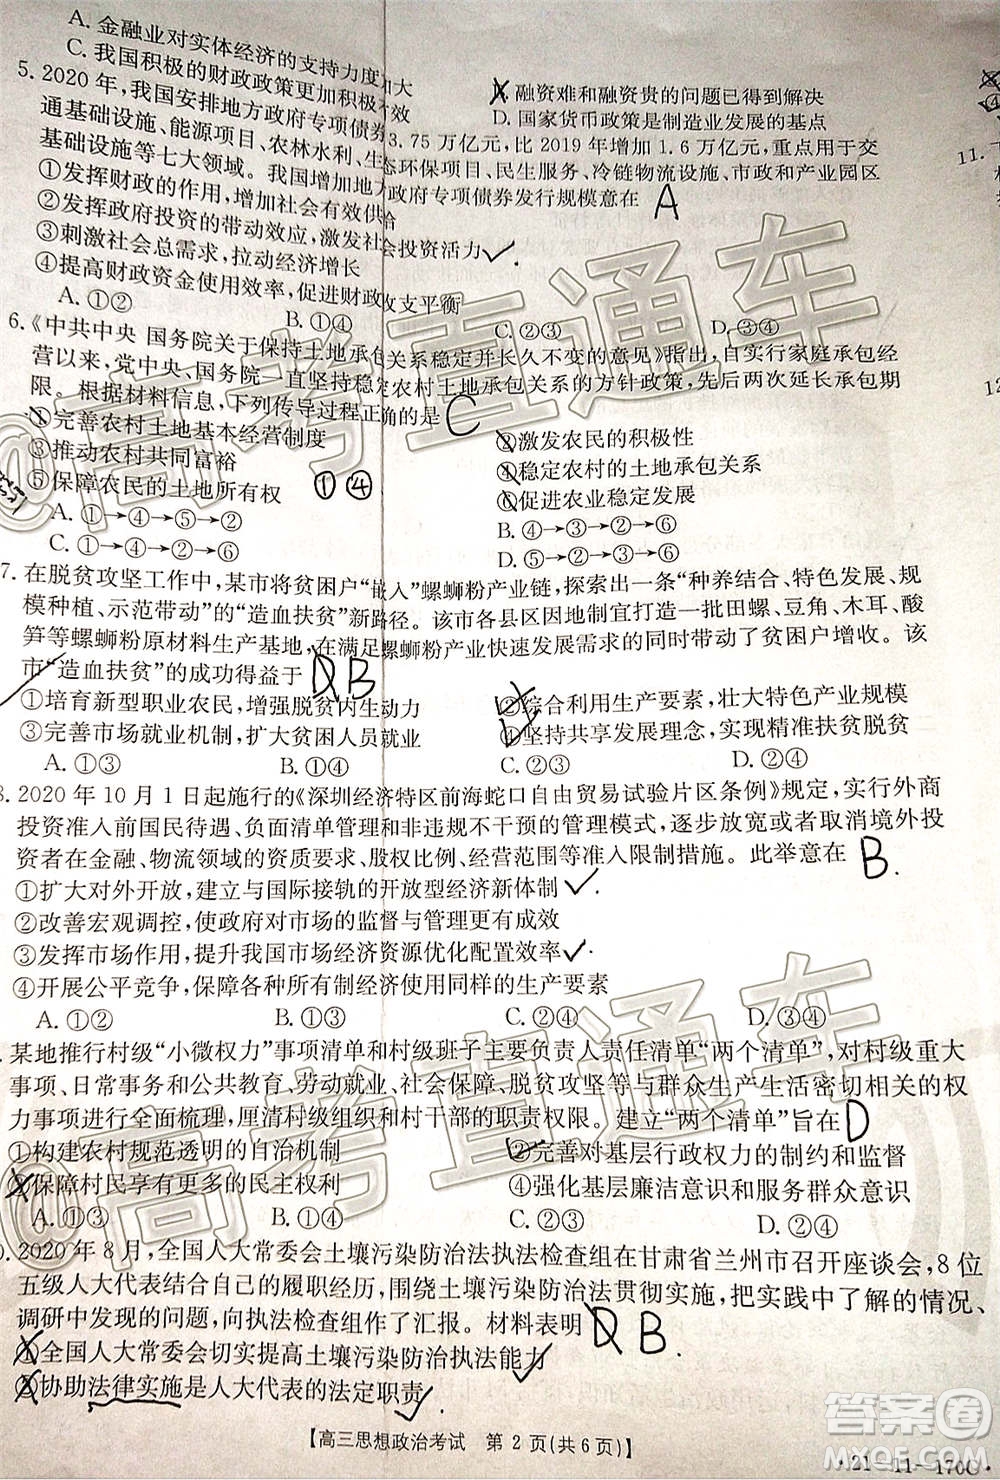 A. 金融业对实体经济的支持力度加大
融资难和融资贵的问题已得到解决
C. 我国积极的财政政策更加积极有效
D. 国家货币政策是制造业发展的基点
5. 2020年,我国安排地方政府专项债券3.75万亿元,比2019年增加1.6万亿元,重点用于交
通基础设施、能源项目、农林水利、生态环保项目、民生服务、冷链物流设施、市政和产业园区
基础设施等七大领域。我国增加地方政府专项债券发行规模意在 A
①发挥财政的作用,增加社会有效供给
②发挥政府投资的带动效应,激发社会投资活力
③刺激社会总需求,拉动经济增长
④提高财政资金使用效率,促进财政收支平衡
A. ①② B. ①④ C. ②③ D. ③④
6.《中共中央 国务院关于保持土地承包关系稳定并长久不变的意见》指出,自实行家庭承包经
营以来,党中央、国务院一直坚持稳定农村土地承包关系的方针政策,先后两次延长承包期
限。根据材料信息,下列传导过程正确的是 C
①完善农村土地基本经营制度
②激发农民的积极性
③推动农村共同富裕
④稳定农村的土地承包关系
⑤保障农民的土地所有权 ① ④
⑥促进农业稳定发展
A. ①→④→⑤→②
B. ④→③→②→⑥
C. ①→④→②→⑥
D. ⑤→③→②→⑥
7. 在脱贫攻坚工作中,某市将贫困户“嵌入”螺蛳粉产业链,探索出一条“种养结合、特色发展、规
模种植、示范带动”的“造血扶贫”新路径。该市各县区因地制宜打造一批田螺、豆角、木耳、酸
笋等螺蛳粉原材料生产基地,在满足螺蛳粉产业快速发展需求的同时带动了贫困户增收。该
市“造血扶贫”的成功得益于 B
①培育新型职业农民,增强脱贫内生动力
②综合利用生产要素,壮大特色产业规模
③完善市场就业机制,扩大贫困人员就业
④坚持共享发展理念,实现精准扶贫脱贫
A. ①③ B. ②④ C. ①④ D. ②③
8. 2020年10月1日起施行的《深圳经济特区前海蛇口自由贸易试验片区条例》规定,实行外商
投资准入前国民待遇、负面清单管理和非违规不干预的管理模式,逐步放宽或者取消境外投
资者在金融、物流领域的资质要求、股权比例、经营范围等准入限制措施。此举意在 B
①扩大对外开放,建立与国际接轨的开放型经济新体制
②改善宏观调控,使政府对市场的监督与管理更有成效
③发挥市场作用,提升我国市场经济资源优化配置效率
④开展公平竞争,保障各类经济使用同样的生产要素
A. ①② B. ①③ C. ②④ D. ③④
某地推行村级“小微权力”事项清单和村级班子主要负责人责任清单“两个清单”,对村级重大
事项、日常事务和公共教育、劳动就业、社会保障、脱贫攻坚等与群众生产生活密切相关的权
力事项进行全面梳理,厘清村干部的职责权限。建立“两个清单”旨在 D
①构建农村规范透明的自治机制
②完善对基层行政权力的制约和监督
③保障村民享有更多的民主权利
④强化基层廉洁意识和服务群众意识
A. ①③ B. ②③ C. ②④ D. ①④
2020年8月,全国人大常委会土壤污染防治法执法检查组在甘肃省兰州市召开座谈会,8位
五级人大代表结合自己的履职经历,围绕土壤污染防治法贯彻实施,把实践中了解的情况、
调研中发现的问题,向执法检查组作了汇报。材料表明 B
①全国人大常委会切实提高土壤污染防治执法能力
②协助法律实施是人大代表的法定职责
【高三思想政治考试 第2页(共6页)】
·21-11-170C·
11.
12
@高考直通车
@高考直通车
答案圈
MXQE.COM